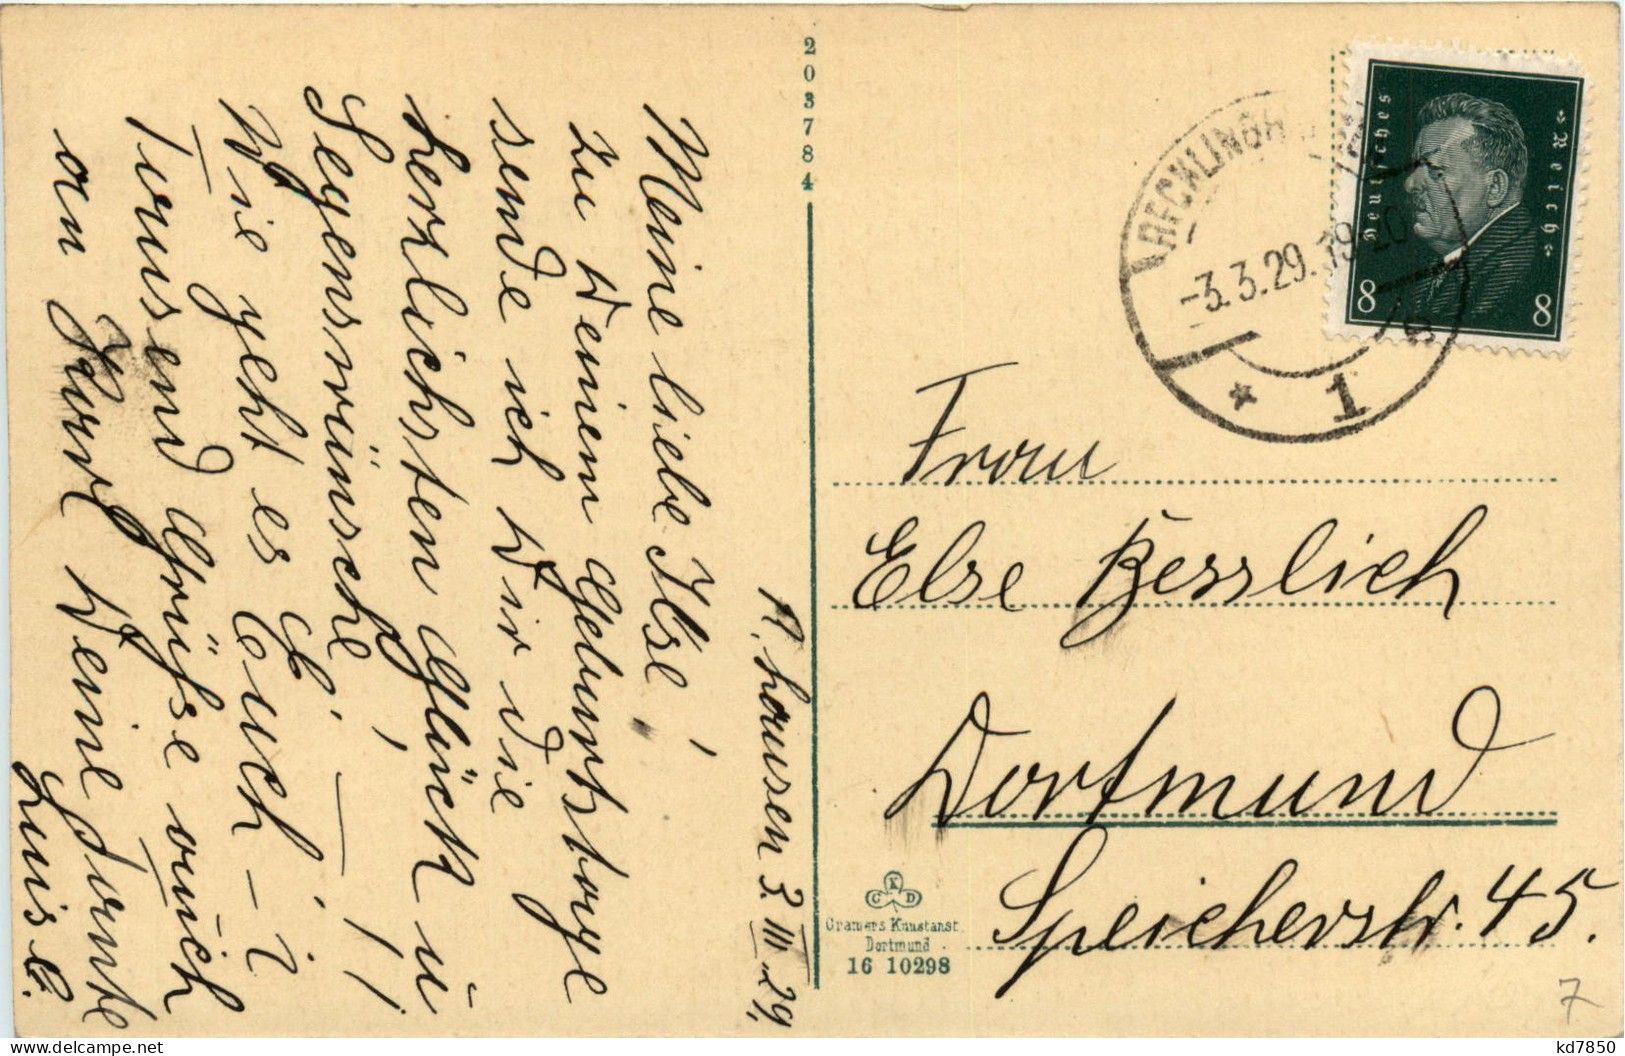 R. hausen 3. III. 29.
Meine liebe Ilse!
zu Deinem Geburtstage
sende ich Dir die
herzlichsten Glück u
Segenswünsche!
Wie geht es Euch
Tausend Grüße auch
an Kurt Deine Tante
Luise.
203784
RECKLINGH
-3.3.29.19-20
* 1
Deutsches
«Reich»
8 8
Frau
Else Besslich
Dortmund
Speicherstr. 45.
CKD
Cramers Kunstanst.
Dortmund
16 10298
7
kd7850